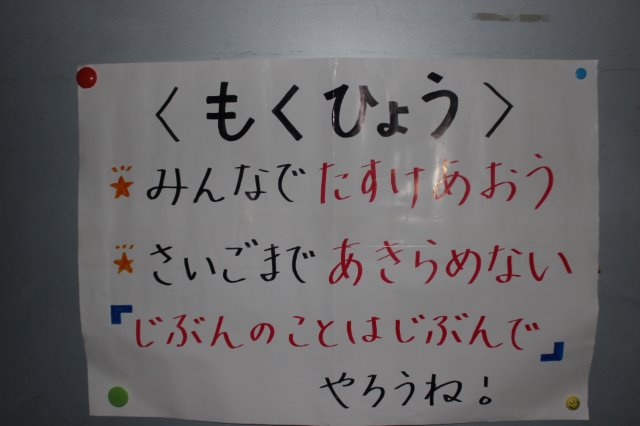 〈もくひょう〉
★みんなでたすけあおう
★さいごまであきらめない
『じぶんのことはじぶんで』
やろうね!